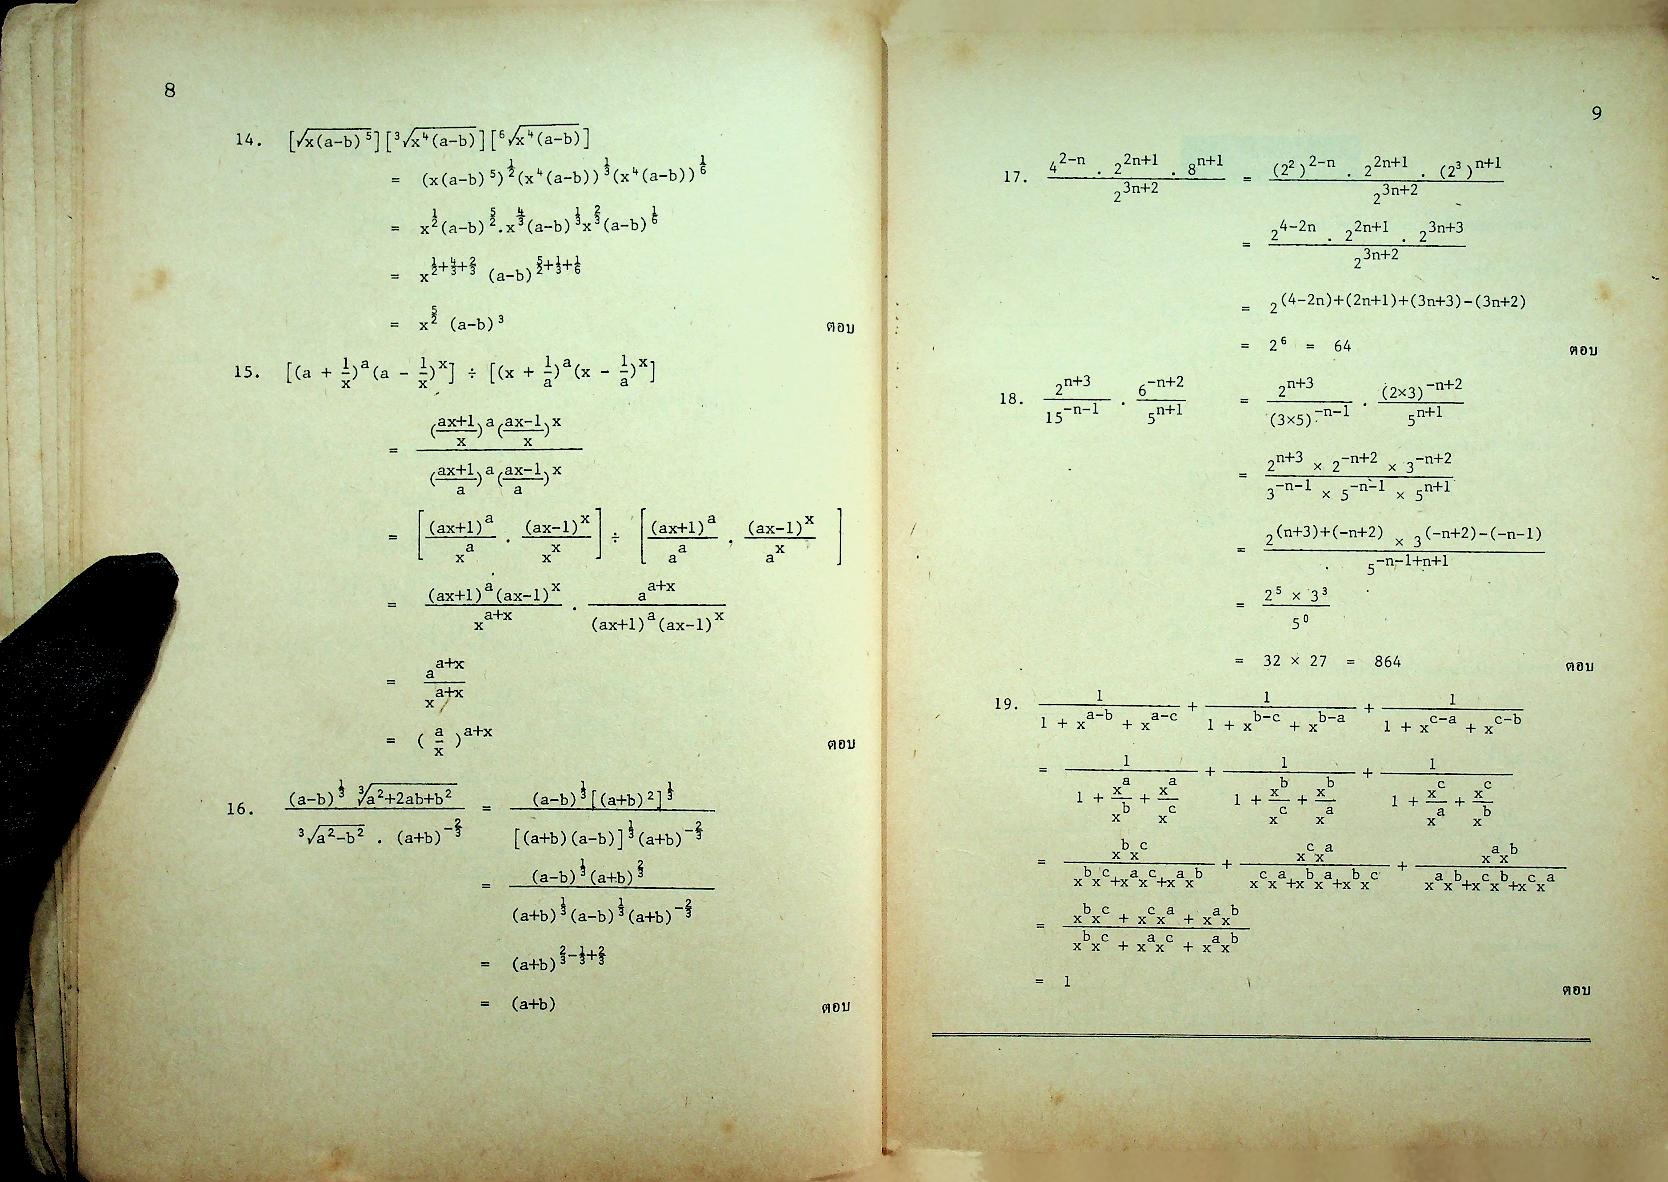 8
14. [√x(a-b)⁵][³√x⁴(a-b)][⁶√x⁴(a-b)]
= (x(a-b)⁵)^½(x⁴(a-b))^⅓(x⁴(a-b))^⅙
= x^½(a-b)^(5/2).x^(4/3)(a-b)^⅓x^⅔(a-b)^⅙
= x^(½+4/3+⅔) (a-b)^(5/2+⅓+⅙)
= x^(5/2) (a-b)³ ตอบ
15. [(a + 1/x)^a(a - 1/x)^x] ÷ [(x + 1/a)^a(x - 1/a)^x]
= ((ax+1)/x)^a((ax-1)/x)^x / ((ax+1)/a)^a((ax-1)/a)^x
= [(ax+1)^a/x^a . (ax-1)^x/x^x] ÷ [(ax+1)^a/a^a . (ax-1)^x/a^x]
= (ax+1)^a(ax-1)^x/x^(a+x) . a^(a+x)/(ax+1)^a(ax-1)^x
= a^(a+x)/x^(a+x)
= (a/x)^(a+x) ตอบ
16. (a-b)^⅓ ³√a²+2ab+b² / ³√a²-b² . (a+b)^(-⅔) = (a-b)^⅓[(a+b)²]^⅓ / [(a+b)(a-b)]^⅓(a+b)^(-⅔)
= (a-b)^⅓(a+b)^⅔ / (a+b)^⅓(a-b)^⅓(a+b)^(-⅔)
= (a+b)^(⅔-⅓+⅔)
= (a+b) ตอบ
9
17. 4^(2-n) . 2^(2n+1) . 8^(n+1) / 2^(3n+2) = (2²)^(2-n) . 2^(2n+1) . (2³)^(n+1) / 2^(3n+2)
= 2^(4-2n) . 2^(2n+1) . 2^(3n+3) / 2^(3n+2)
= 2^((4-2n)+(2n+1)+(3n+3)-(3n+2))
= 2⁶ = 64 ตอบ
18. 2^(n+3)/15^(-n-1) . 6^(-n+2)/5^(n+1) = 2^(n+3)/(3×5)^(-n-1) . (2×3)^(-n+2)/5^(n+1)
= 2^(n+3) × 2^(-n+2) × 3^(-n+2) / 3^(-n-1) × 5^(-n-1) × 5^(n+1)
= 2^((n+3)+(-n+2)) × 3^((-n+2)-(-n-1)) / 5^(-n-1+n+1)
= 2⁵ × 3³ / 5⁰
= 32 × 27 = 864 ตอบ
19. 1/(1 + x^(a-b) + x^(a-c)) + 1/(1 + x^(b-c) + x^(b-a)) + 1/(1 + x^(c-a) + x^(c-b))
= 1/(1 + x^a/x^b + x^a/x^c) + 1/(1 + x^b/x^c + x^b/x^a) + 1/(1 + x^c/x^a + x^c/x^b)
= x^b x^c/(x^b x^c+x^a x^c+x^a x^b) + x^c x^a/(x^c x^a+x^b x^a+x^b x^c) + x^a x^b/(x^a x^b+x^c x^b+x^c x^a)
= (x^b x^c + x^c x^a + x^a x^b)/(x^b x^c + x^a x^c + x^a x^b)
= 1 ตอบ